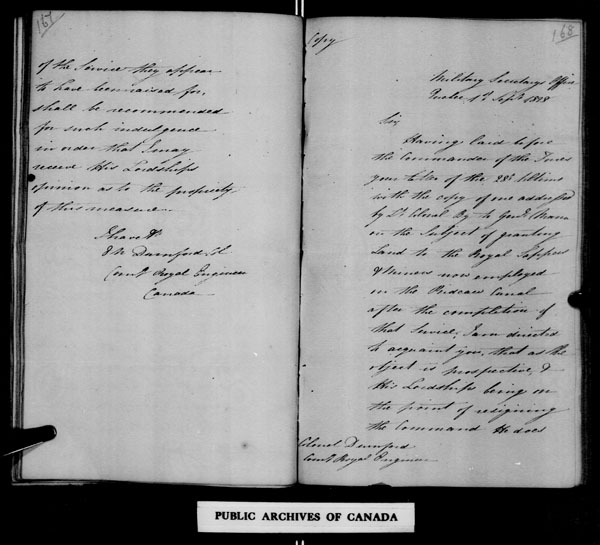 167
of the Service they appear
to have been raised for,
shall be recommended
for such indulgence
in order that I may
receive His Lordships
opinion as to the propriety
of this measure
I have &c
Durnford Col
Comg Royal Engineer
Canada
168
Copy
Military Secretarys Office
Quebec 1st Septr 1828
Sir
Having laid before
the Commander of the Forces
your letter of the 28th Ultimo
with the copy of one addressed
by Lt Colonel By to Genl Mann
on the Subject of granting
Land to the Royal Sappers
& Miners now employed
on the Rideau Canal
after the completion of
that Service; I am directed
to acquaint you, that as the
object is prospective, &
His Lordships being on
the point of resigning
the Command He does
Colonel Durnford
Comg Royal Engineer
PUBLIC ARCHIVES OF CANADA